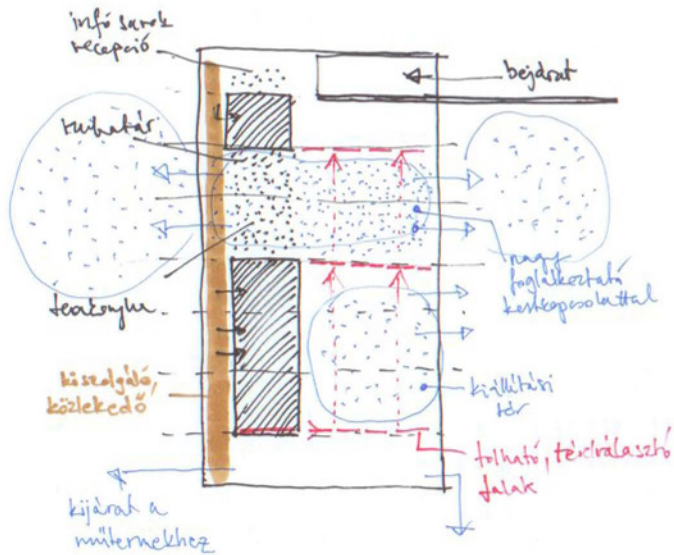 infó sarok
recepció
bejárat
ruhatár
teakonyha
nagy
foglalkoztató
kertkapcsolattal
kiszolgáló,
közlekedő
kiállítási
tér
tolható, térelválasztó
falak
kijárat a
műtermekhez